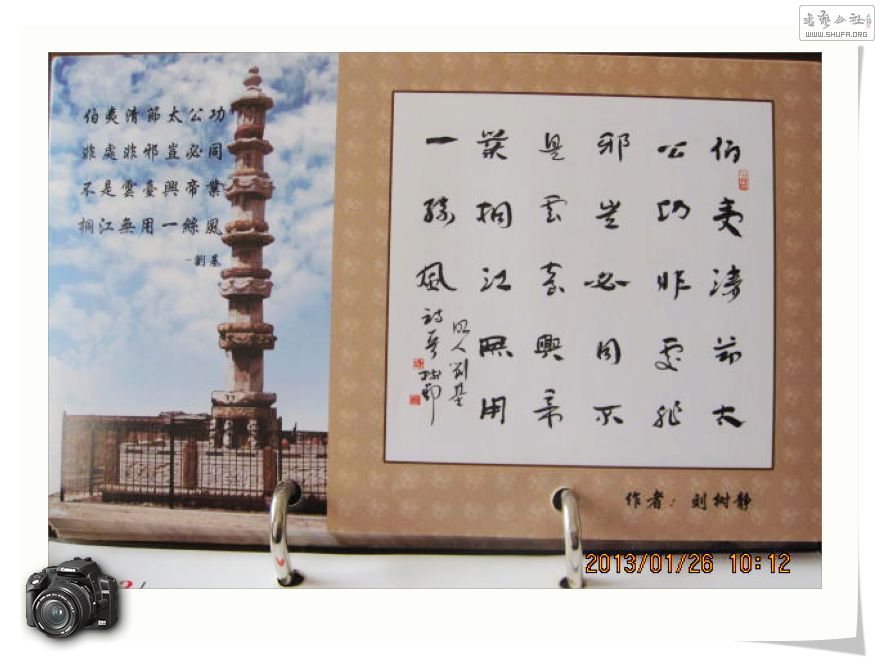 書法公社
WWW.SHUFA.ORG
伯夷清節太公功
非處非邪豈必同
不是雲臺興帝業
桐江無用一絲風
-劉基
伯夷清節太
公功非處非
邪豈必同不
是雲臺興帝
業桐江無用
一絲風
明人劉基
詩
作者：刘树静
2013/01/26 10:12
Canon
EOS